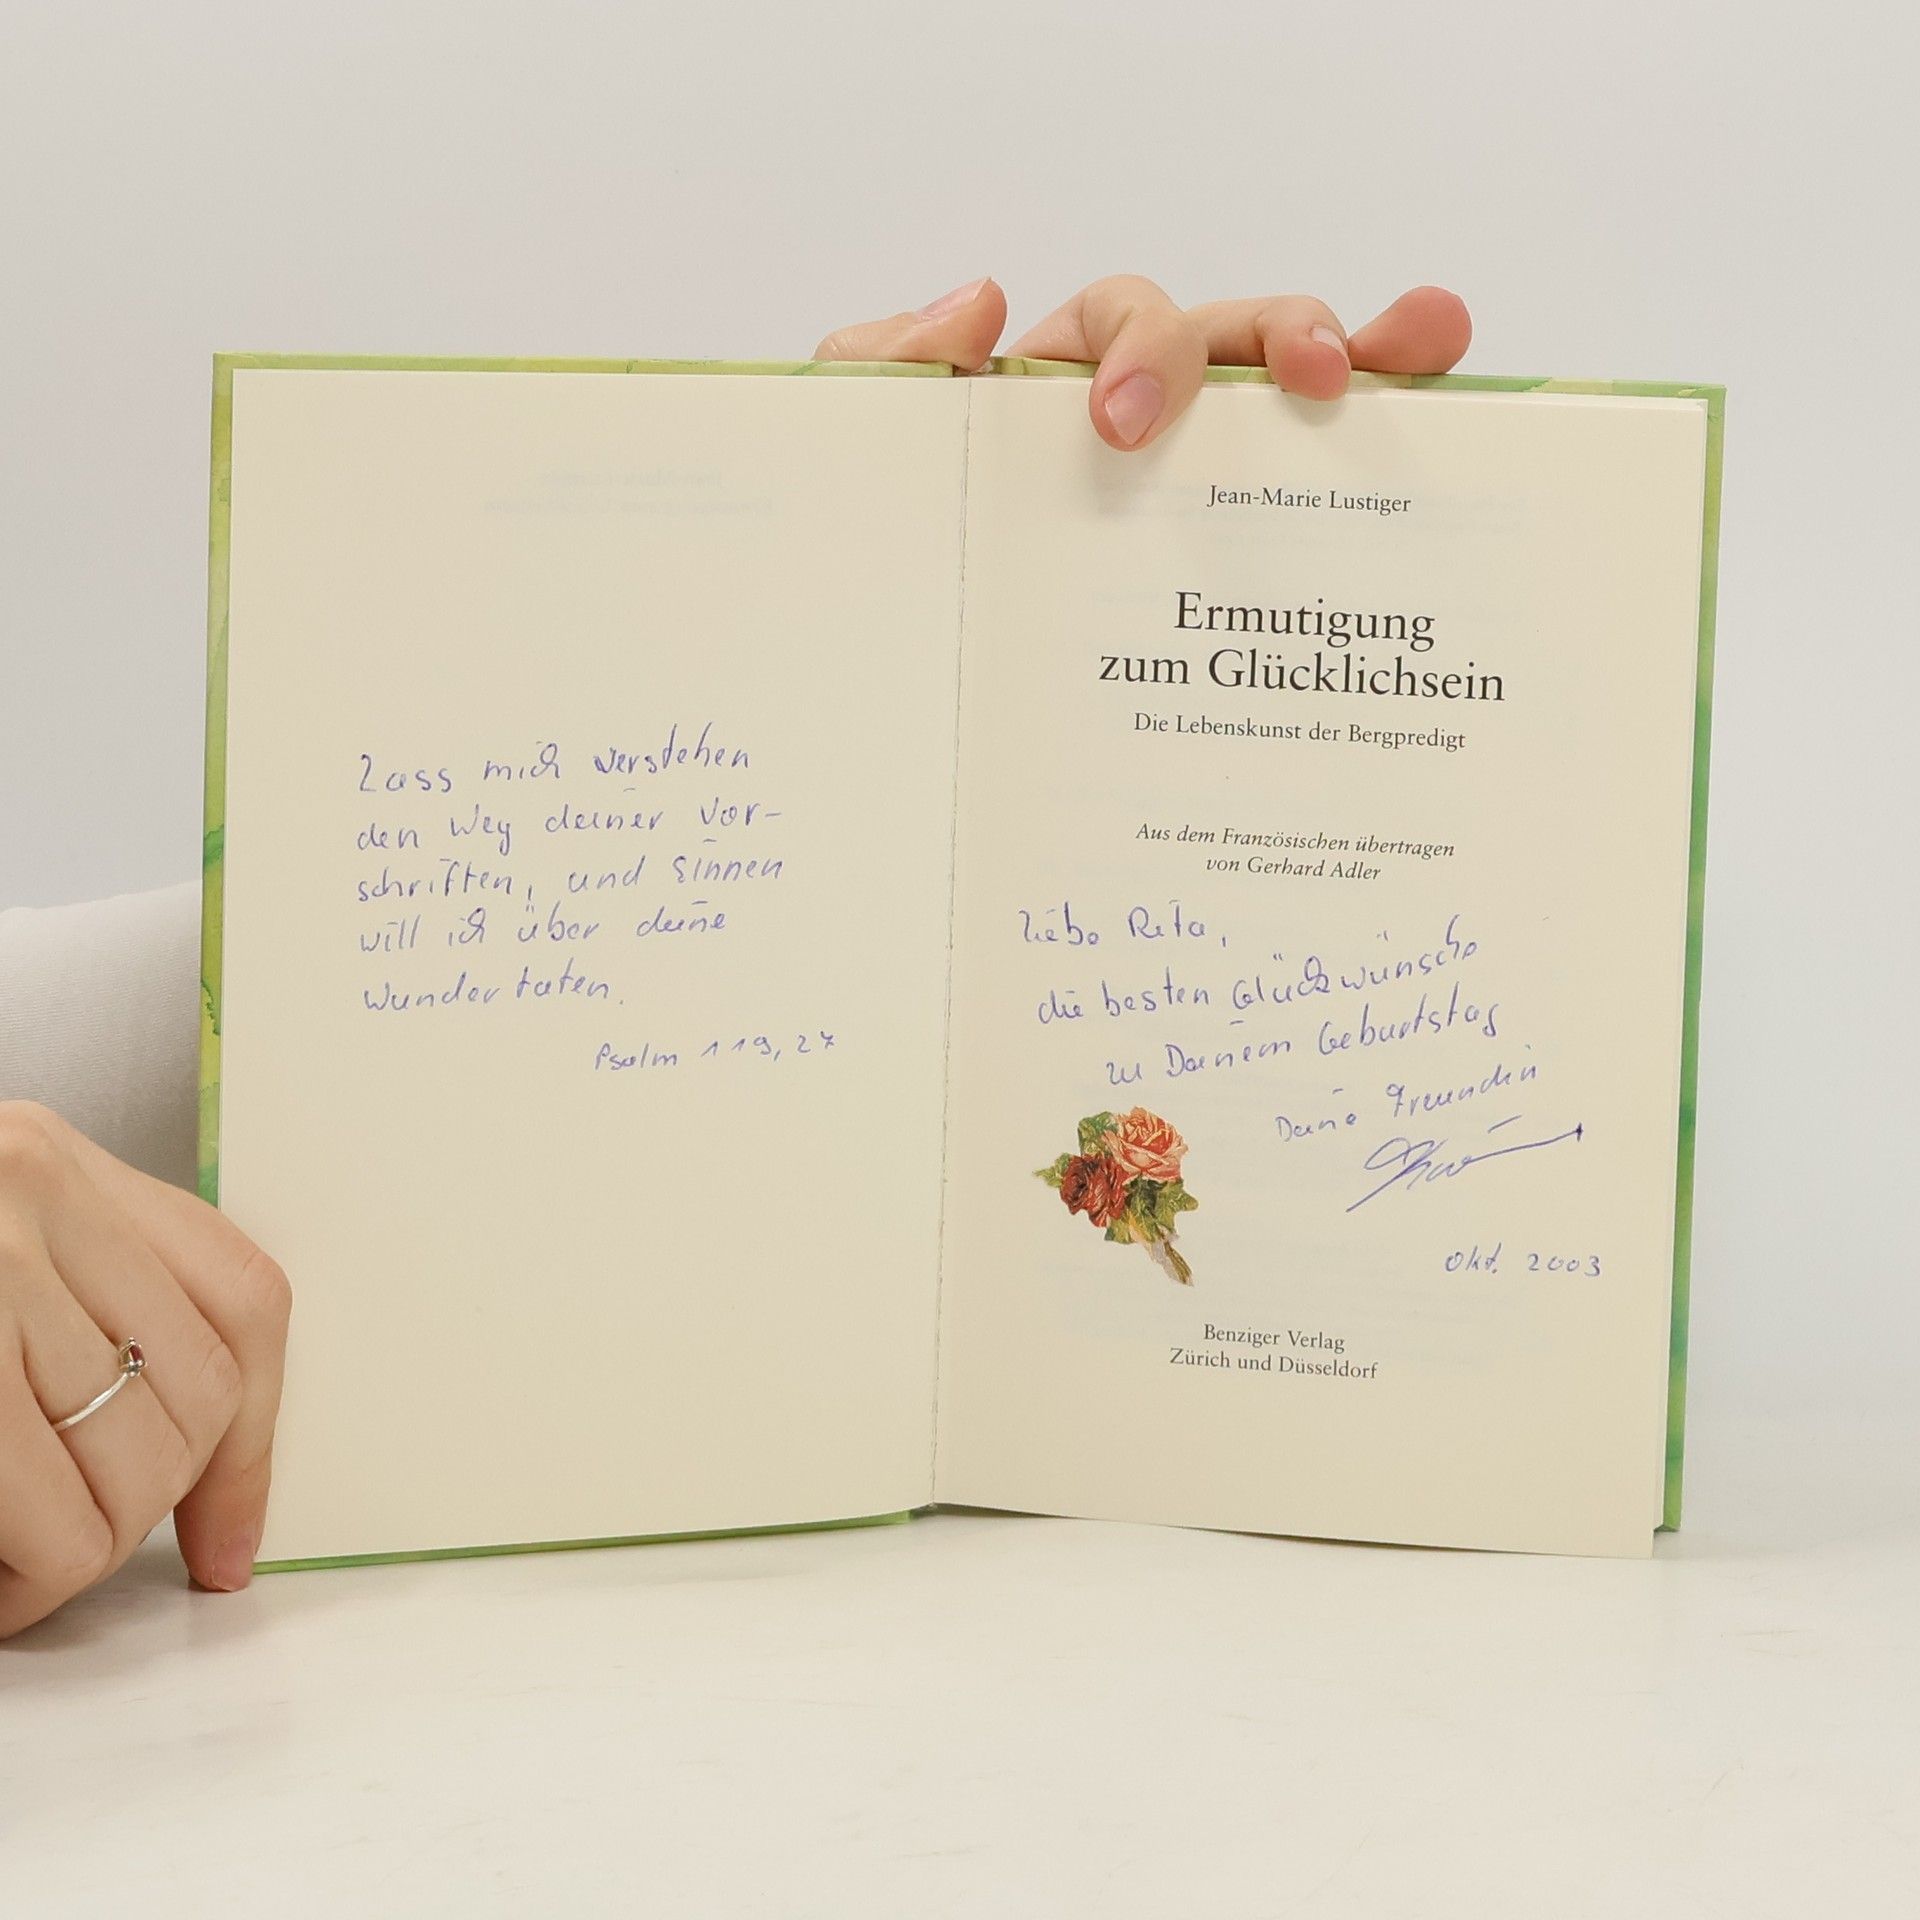 Lass mich verstehen
den Weg deiner Vor-
schriften, und sinnen
will ich über deine
Wundertaten.
Psalm 119,27
Jean-Marie Lustiger
Ermutigung
zum Glücklichsein
Die Lebenskunst der Bergpredigt
Aus dem Französischen übertragen
von Gerhard Adler
Liebe Rita,
die besten Glückwünsche
zu Deinem Geburtstag
Deine Freundin
Okt. 2003
Benziger Verlag
Zürich und Düsseldorf